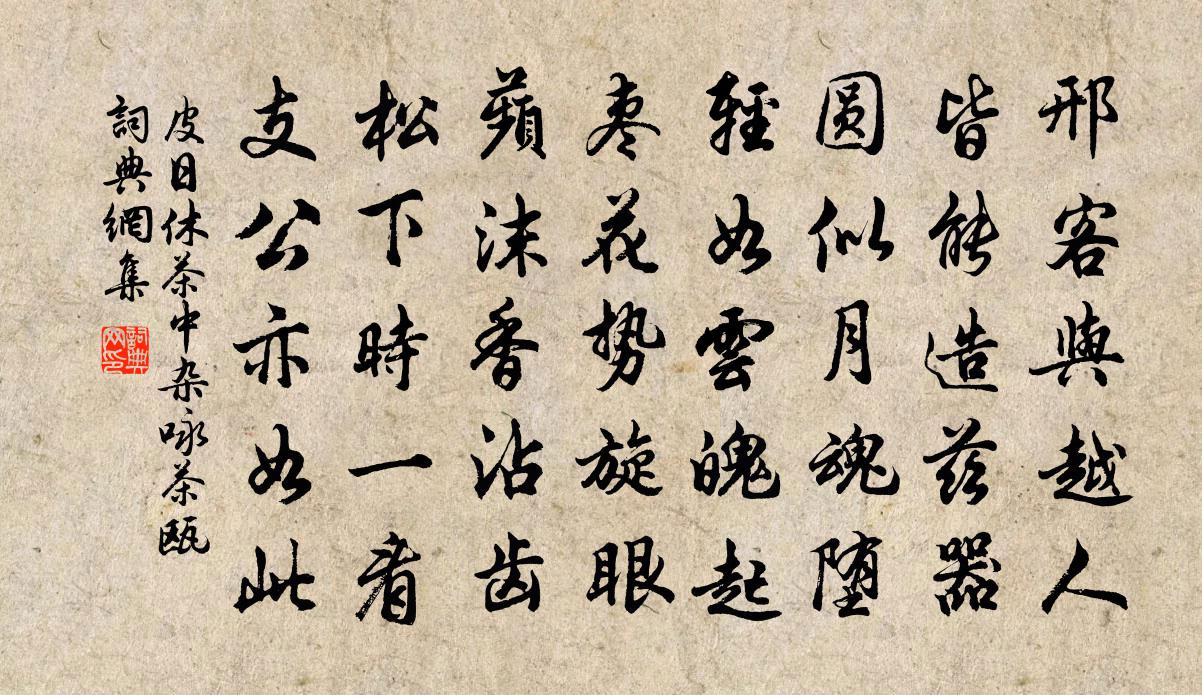 邢客與越人
皆能造茲器
圆似月魂堕
輕如雲魄起
枣花势旋眼
蘋沫香沾齿
松下時一看
支公亦如此
皮日休茶中杂咏茶瓯
詞典網集
詞典网印